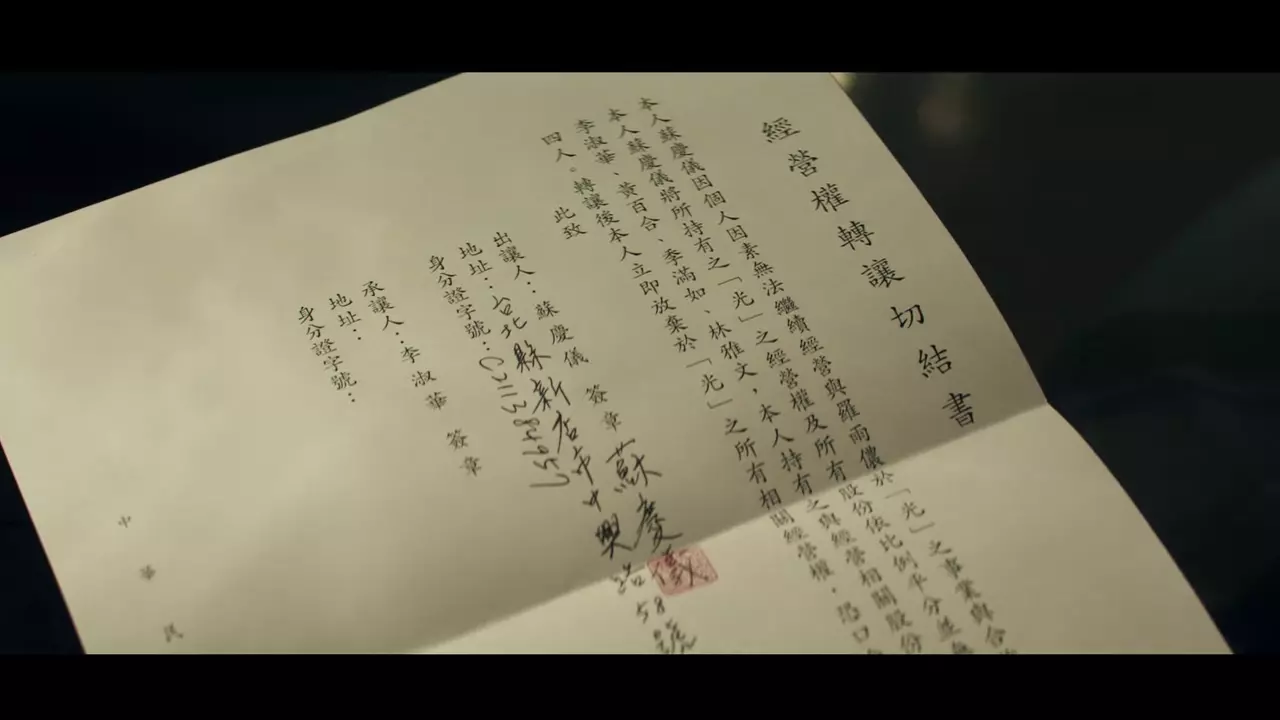 經營權轉讓切結書
本人蘇慶儀因個人因素無法繼續經營與羅雨儂於「光」之事業與合
本人蘇慶儀將所持有之「光」之經營權及所有股份依比例平分並無
李淑華、黃百合、季滿如、林雅文，本人持有之與經營相關股份
四人。轉讓後本人立即放棄於「光」之所有相關經營權，恐口
此致
出讓人：蘇慶儀 簽章 蘇慶儀
地址：台北縣新店市中興路58號
身分證字號：C211384957
承讓人：李淑華 簽章
地址：
身分證字號：
中華民